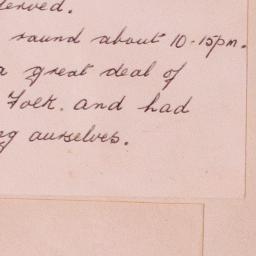 served.
round about 10-15pm.
a great deal of
Folk. and had
ng ourselves.